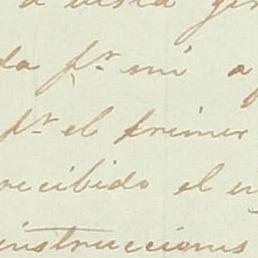 a vista
da pr mi a
pr el primer
recibido el
instrucciones